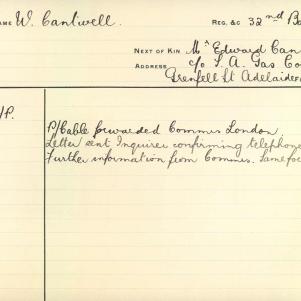 NAME W. Cantwell. REG. &C 32nd Ba
NEXT OF KIN Mr Edward Can
ADDRESS c/o S. A. Gas Co
Grenfell St Adelaide
P.
P/Cable forwarded Commrs London
Letter sent Inquirer confirming telephone
Further information from Commrs.